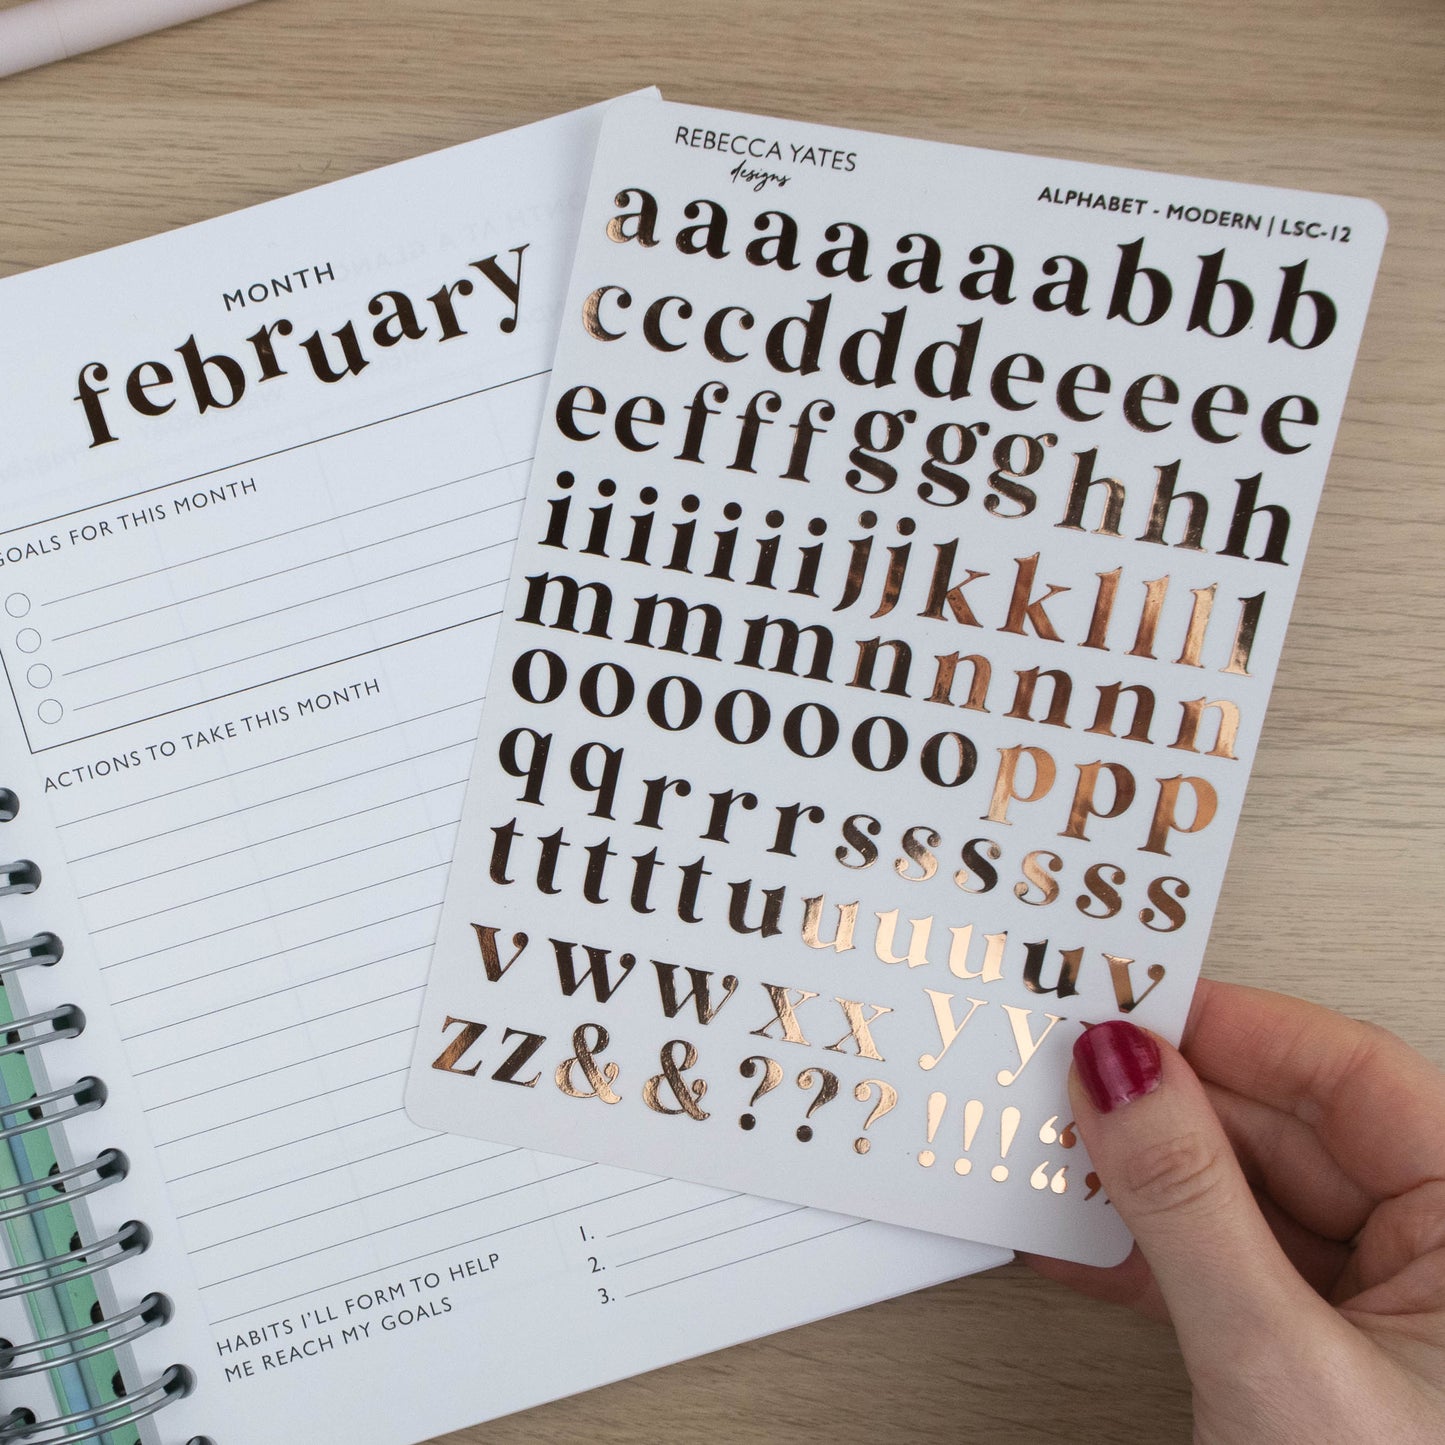 MONTH
february
GOALS FOR THIS MONTH
ACTIONS TO TAKE THIS MONTH
HABITS I'LL FORM TO HELP
ME REACH MY GOALS
1.
2.
3.
REBECCA YATES
designs
ALPHABET - MODERN | LSC-12
aaaaaaabbb
cccdddeeeee
eefffggghhh
iiiiiiijjkkllll
mmmnnnnn
oooooooppp
qqrrrssssss
tttttuuuuuv
vwwxxyy
zz&&???!!!“
“